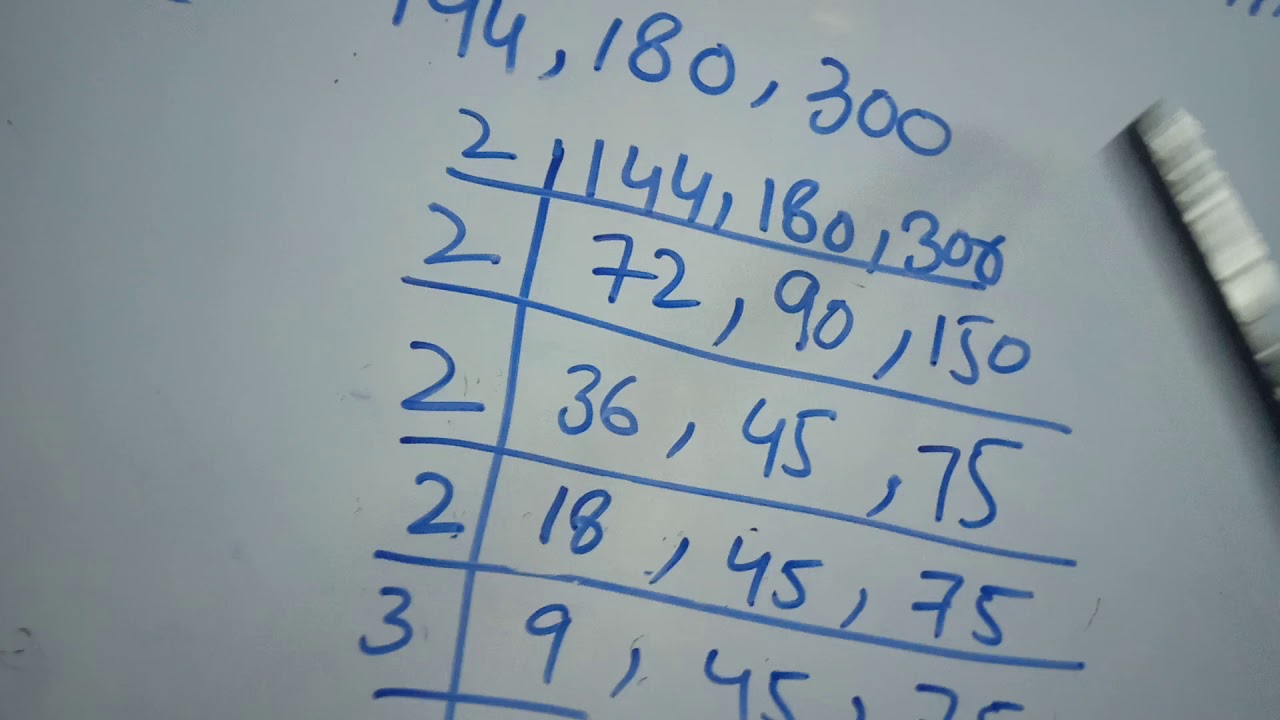 144, 180, 300
2 | 144, 180, 300
2 | 72, 90, 150
2 | 36, 45, 75
2 | 18, 45, 75
3 | 9, 45, 75